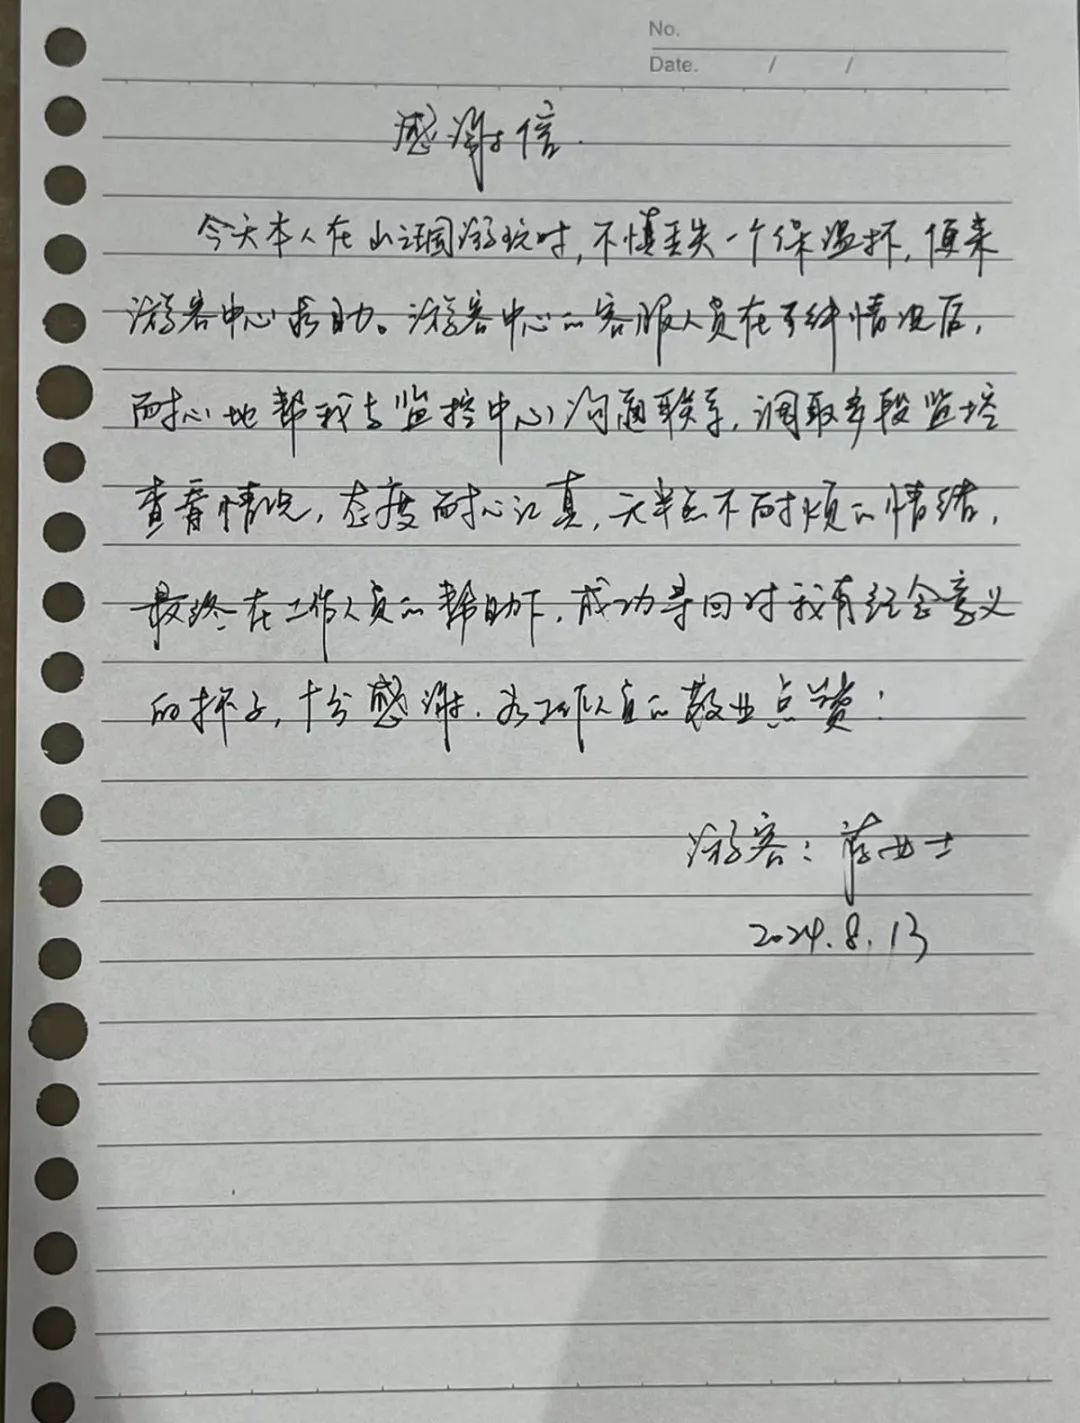 No.
Date. / /
感谢信.
今天本人在山江湖游玩时,不慎丢失一个保温杯,便来
游客中心求助。游客中心的客服人员在了解情况后,
耐心地帮我与监控中心沟通联系,调取多段监控
查看情况,态度耐心认真,无半点不耐烦的情绪,
最终在工作人员的帮助下,成功寻回对我有纪念意义
的杯子,十分感谢.为工作人员的敬业点赞!
游客:薛女士
2024.8.13